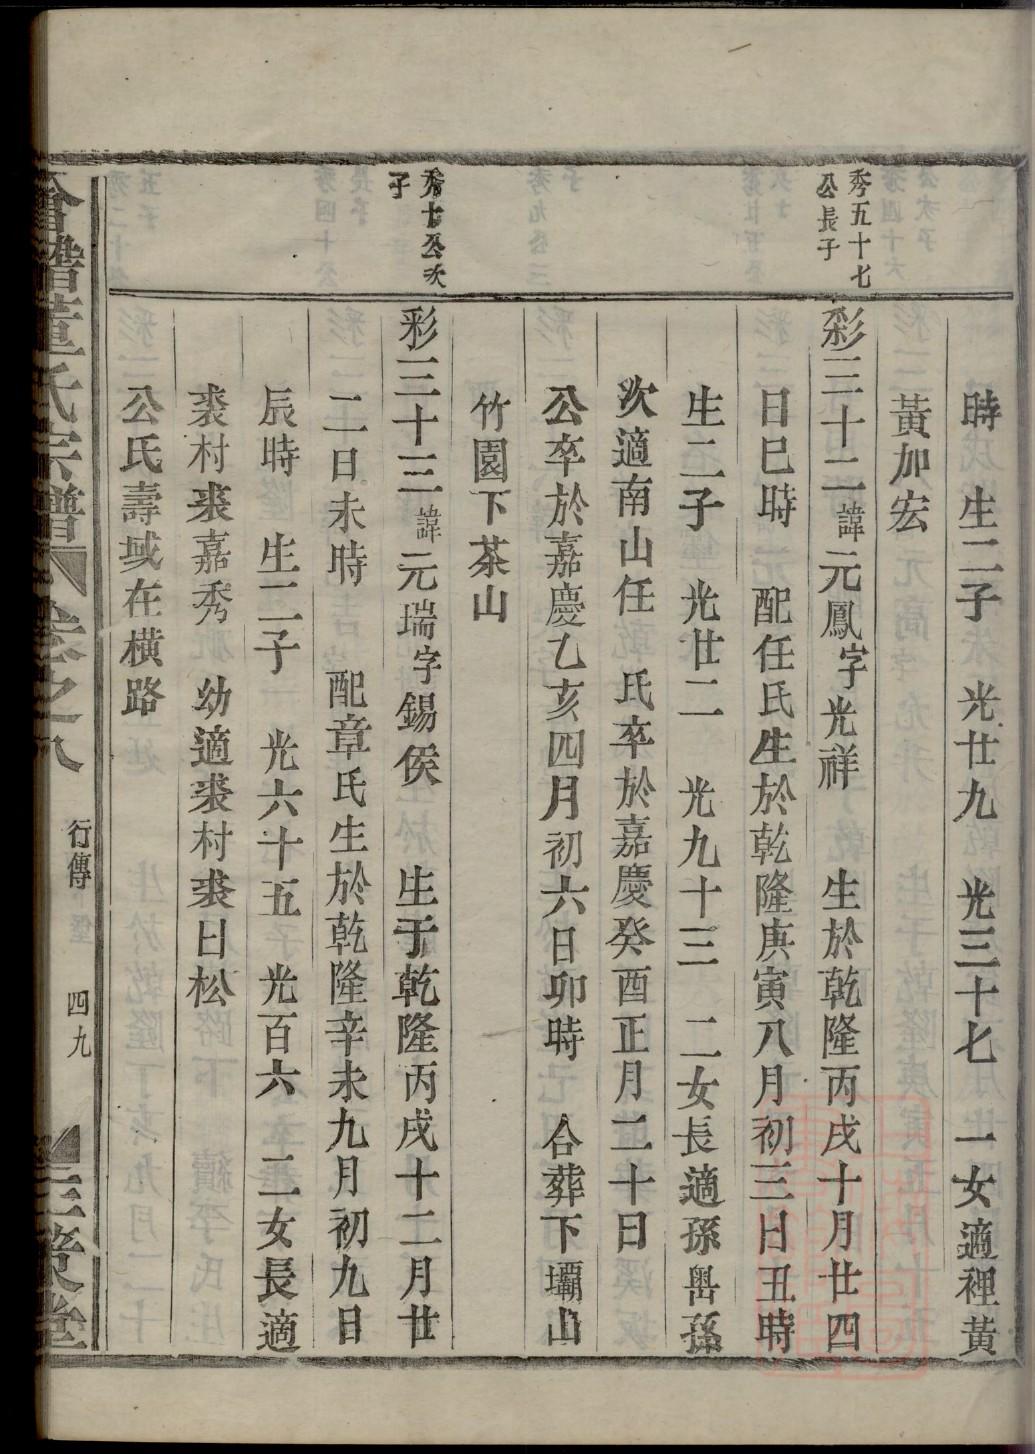 時　生二子　光廿九　光三十七　一女適裡黃
黃加宏
秀五十七
公長子
彩三十二諱元鳳字光祥　生於乾隆丙戌十月廿四
日巳時　配任氏生於乾隆庚寅八月初三日丑時
生二子　光廿二　光九十三　二女長適孫嶴孫
次適南山任　氏卒於嘉慶癸酉正月二十日
公卒於嘉慶乙亥四月初六日卯時　合葬下壩山
竹園下茶山
秀十公次
子
彩三十三諱元瑞字錫侯　生于乾隆丙戌十二月廿
二日未時　配章氏生於乾隆辛未九月初九日
辰時　生二子　光六十五　光百六　二女長適
裘村裘嘉秀　幼適裘村裘日松
公氏壽域在橫路
會稽董氏宗譜　卷之八　行傳　四九　三策堂